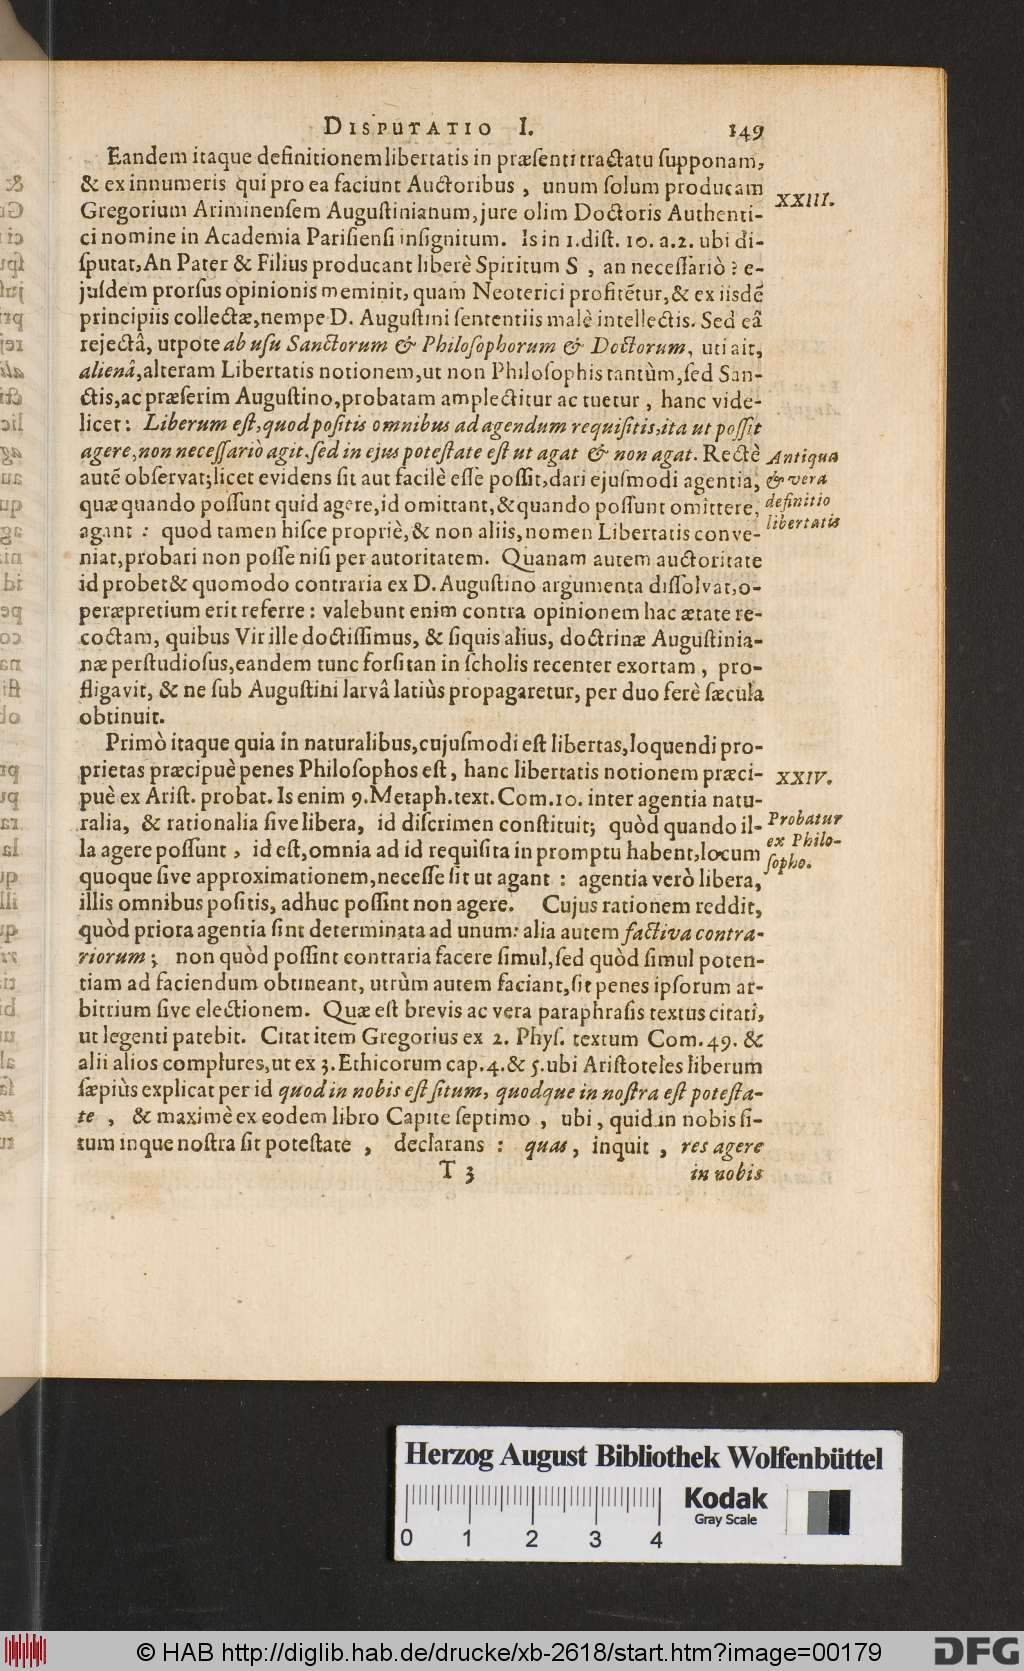 Disputatio I. 149
Eandem itaque definitionem libertatis in præsenti tractatu supponam,
& ex innumeris qui pro ea faciunt Auctoribus, unum solum producam
XXIII.
Gregorium Ariminensem Augustinianum, jure olim Doctoris Authenti-
ci nomine in Academia Parisiensi insignitum. Is in 1. dist. 10. a. 2. ubi di-
sputat, An Pater & Filius producant liberè Spiritum S, an necessariò? e-
jusdem prorsus opinionis meminit, quam Neoterici profitẽtur, & ex iisdẽ
principiis collectæ, nempe D. Augustini sententiis malè intellectis. Sed eâ
rejectâ, utpote ab usu Sanctorum & Philosophorum & Doctorum, uti ait,
alienâ, alteram Libertatis notionem, ut non Philosophis tantùm, sed San-
ctis, ac præserim Augustino, probatam amplectitur ac tuetur, hanc vide-
licet: Liberum est, quod positis omnibus ad agendum requisitis, ita ut possit
agere, non necessariò agit. sed in ejus potestate est ut agat & non agat. Rectè
Antiqua
& vera
definitio
libertatis
autẽ observat; licet evidens sit aut facilè esse possit, dari ejusmodi agentia,
quæ quando possunt quid agere, id omittant, & quando possunt omittere,
agant: quod tamen hisce propriè, & non aliis, nomen Libertatis conve-
niat, probari non posse nisi per autoritatem. Quanam autem auctoritate
id probet & quomodo contraria ex D. Augustino argumenta dissolvat, o-
peræpretium erit referre: valebunt enim contra opinionem hac ætate re-
coctam, quibus Vir ille doctissimus, & siquis alius, doctrinæ Augustinia-
næ perstudiosus, eandem tunc forsitan in scholis recenter exortam, pro-
fligavit, & ne sub Augustini larvâ latiùs propagaretur, per duo ferè sæcula
obtinuit.
Primò itaque quia in naturalibus, cujusmodi est libertas, loquendi pro-
prietas præcipuè penes Philosophos est, hanc libertatis notionem præci-
XXIV.
puè ex Arist. probat. Is enim 9. Metaph. text. Com. 10. inter agentia natu-
ralia, & rationalia sive libera, id discrimen constituit; quòd quando il-
Probatur
ex Philo-
sopho.
la agere possunt, id est, omnia ad id requisita in promptu habent, locum
quoque sive approximationem, necesse sit ut agant: agentia verò libera,
illis omnibus positis, adhuc possint non agere. Cujus rationem reddit,
quòd priora agentia sint determinata ad unum: alia autem factiva contra-
riorum; non quòd possint contraria facere simul, sed quòd simul poten-
tiam ad faciendum obtineant, utrùm autem faciant, sit penes ipsorum ar-
bitrium sive electionem. Quæ est brevis ac vera paraphrasis textus citati,
ut legenti patebit. Citat item Gregorius ex 2. Phys. textum Com. 49. &
alii alios complures, ut ex 3. Ethicorum cap. 4. & 5. ubi Aristoteles liberum
sæpiùs explicat per id quod in nobis est situm, quodque in nostra est potesta-
te, & maximè ex eodem libro Capite septimo, ubi, quid in nobis si-
tum inque nostra sit potestate, declarans: quas, inquit, res agere
T 3 in nobis
Herzog August Bibliothek Wolfenbüttel
Kodak
Gray Scale
0 1 2 3 4
© HAB http://diglib.hab.de/drucke/xb-2618/start.htm?image=00179
DFG